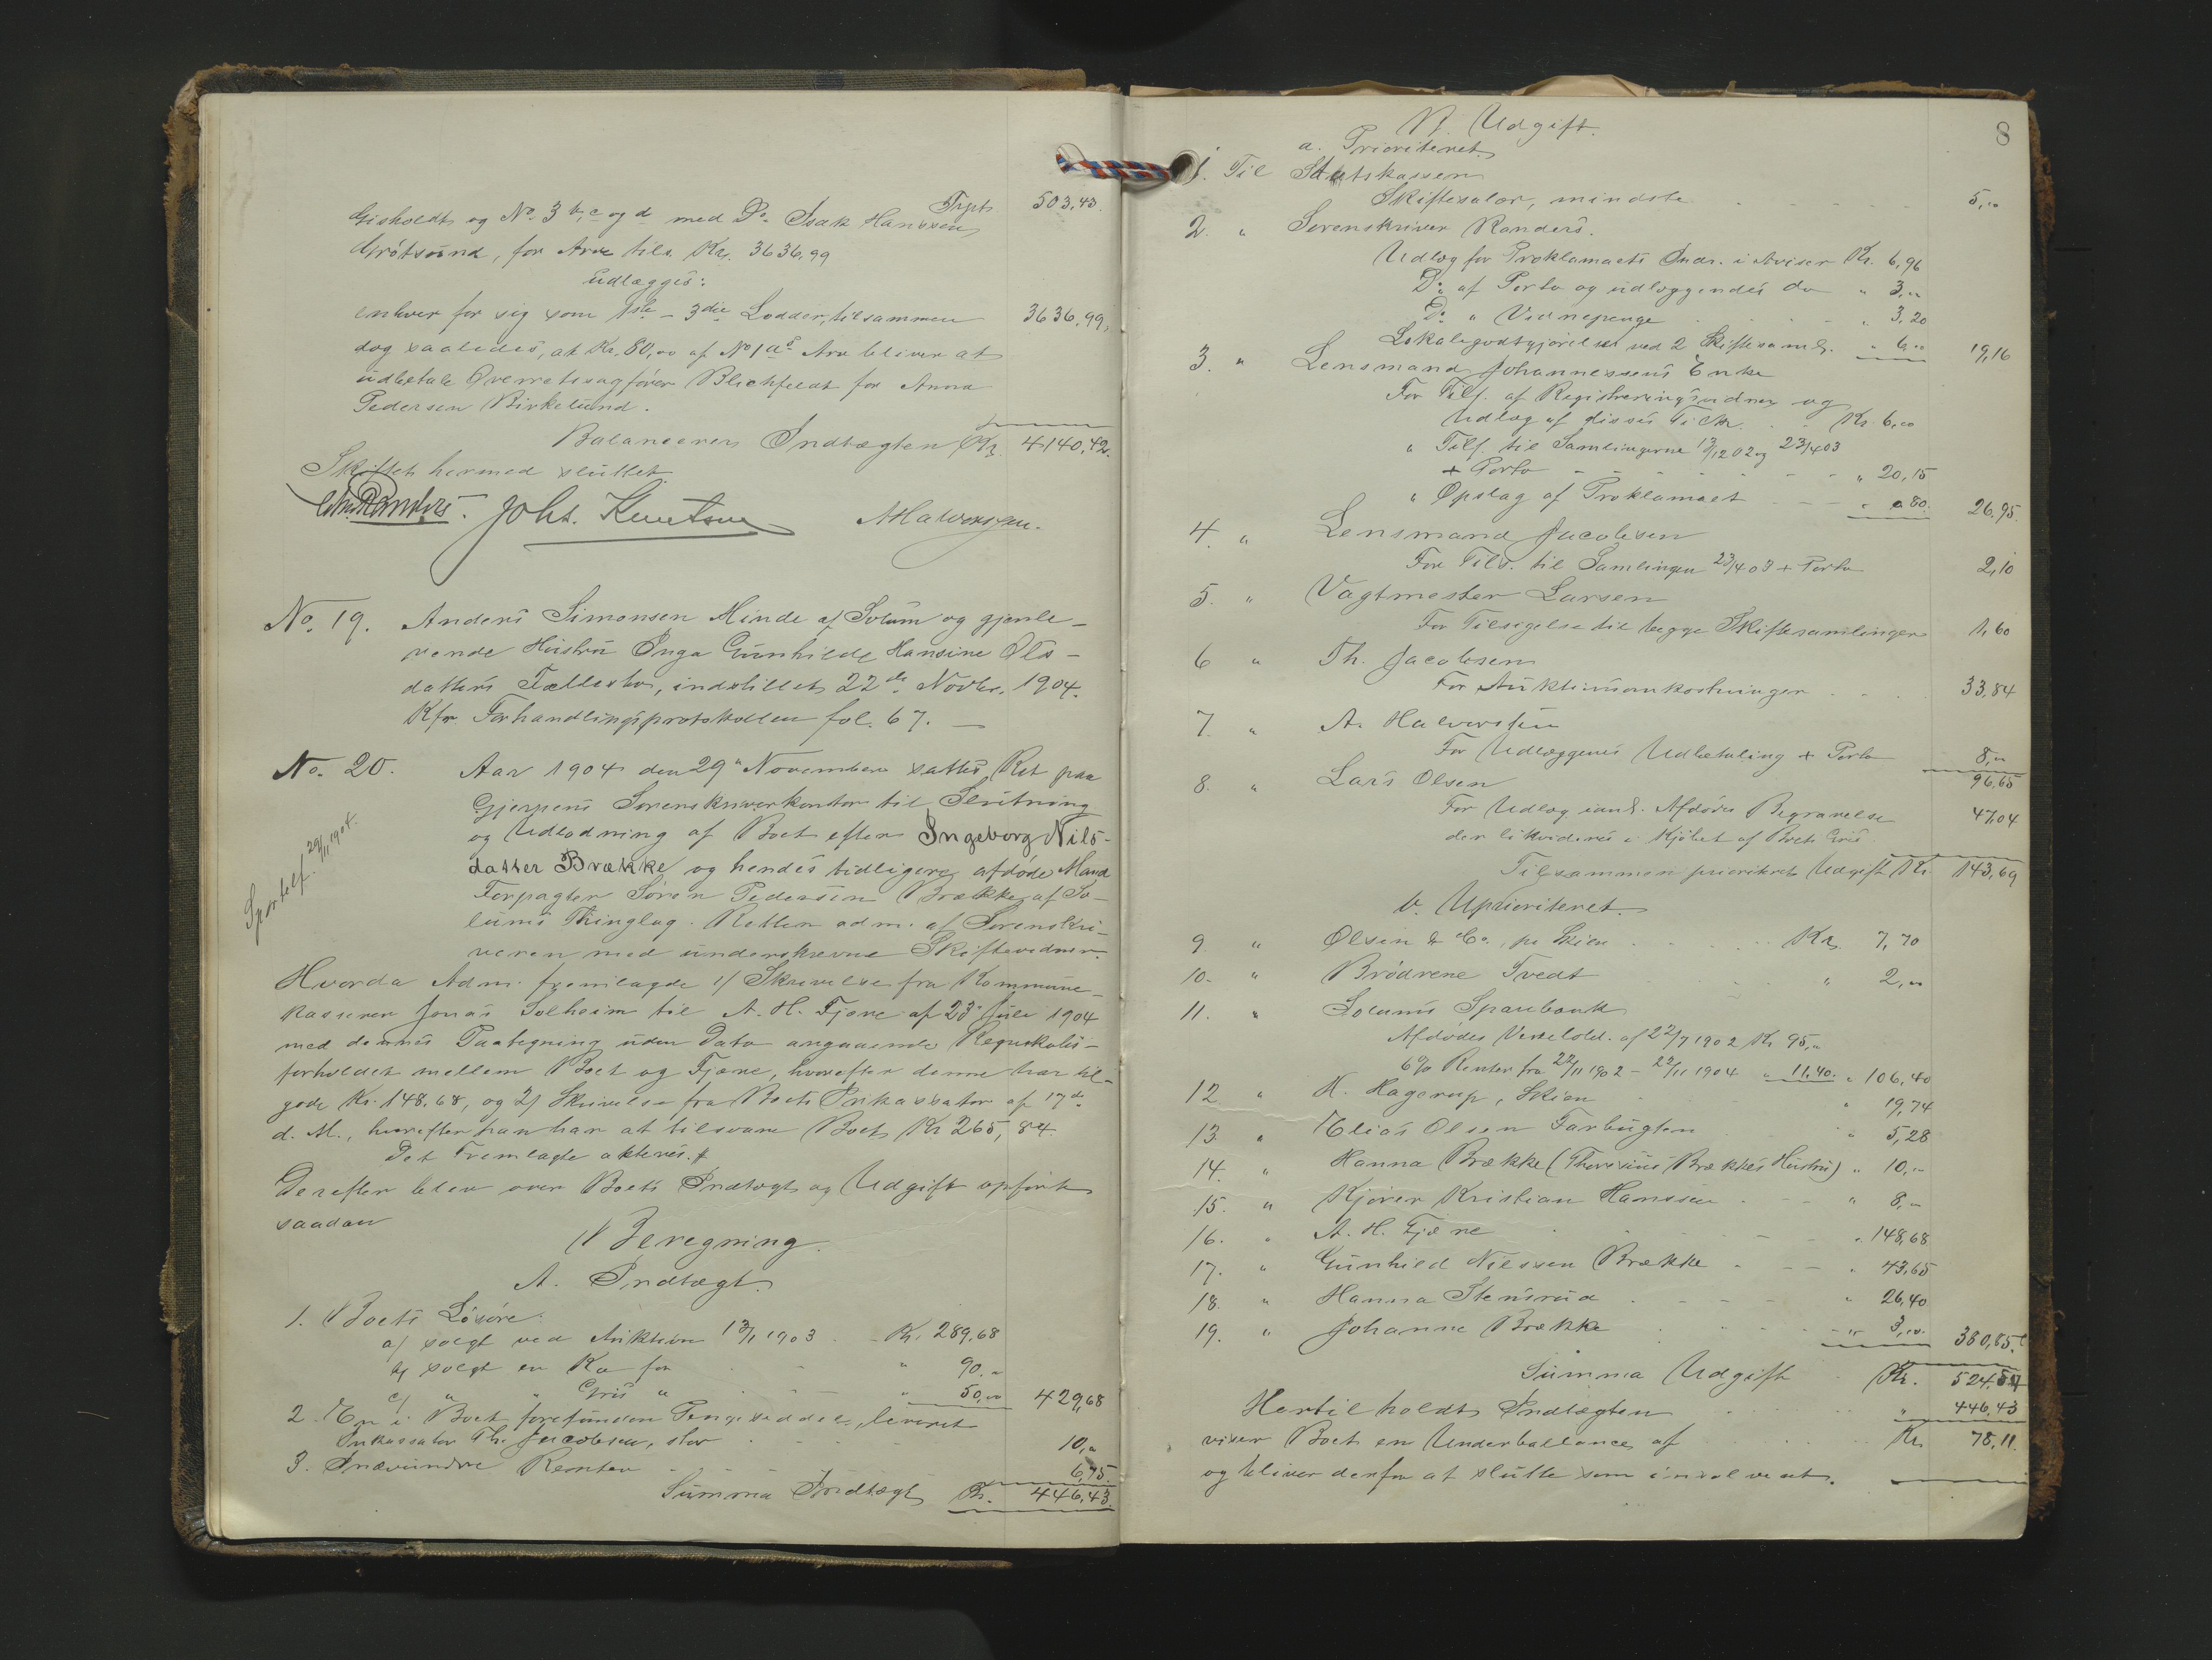 Trpt. 503,43.
Gisholdt og No. 3 b, c og d med Do. Isak Hanssen
Grötsund, for Arv tils. Kr. 3636,99
udlægges:
enhver for sig som 1ste - 3die Lodder, tilsammen 3636,99,
dog saaledes, at Kr. 80,00 af No 1 a's Arv bliver at
udbetale Overretssagfører Blichfeldt for Anna
Pedersen Birkelund.
Balancerer Indtægten Kr. 4140,42.
Skiftet hermed sluttet.
Chr. Randers. Johs. Knutsen A Halvorsen.
No. 19. Anders Simonsen Minde af Solum og gjenle-
vende Hustru Inga Gunhilde Hansine Ols-
datters Fællesbo, indstillet 22de Novbr. 1904.
Kfr. Forhandlingsprotokollen fol. 67. —
No. 20. Aar 1904 den 29de November sattes Ret paa
Gjerpens Sorenskriverkontor til Slutning
og Udlodning af Boet efter Ingeborg Nils-
datter Brække og hendes tidligere afdöde Mand
Forpagter Sören Pedersen Brække af So-
lums Thinglag. Retten adm. af Sorenskri-
veren med underskrevne Skiftevidner.
Sportelf. 29/11 1904.
Hvorda Adm. fremlagde 1/ Skrivelse fra Kommune-
kasserer Jonas Solheim til A. H. Fjære af 23de Juli 1904
med dennes Paategning uden Dato angaaende Regnskabs-
forholdet mellem Boet og Fjære, hvorefter denne har til-
gode Kr. 148,68, og 2/ Skrivelse fra Boets Inkassator af 17de
d. M., hvorefter han har at tilsvare Boet Kr 265,84.
Det Fremlagte akteres.
Derefter blev over Boets Indtægt og Udgift opfört
saadan
Beregning.
A. Indtægt.
1. Boets Lösöre:
a/ solgt ved Auktion 13/1 1903 Kr. 289,68
b/ solgt en Ko for " 90,"
c/ " " Gris " " 50,00 429,68
2. En i Boet forefunden Pengeseddel, leveret
Inkassator Th. Jacobsen, stor 10,"
3. Indvundne Renter 6,75
Summa Indtægt Kr. 446,43.
8
B. Udgift.
a. Prioriteret.
1. Til Statskassen
Skiftesalær, mindste 5,00
2. " Sorenskriver Randers.
Udlæg for Proklamaets Indr. i Aviser Kr. 6,96
Do. af Porto og udlæggendes do " 3,"
Do. " Vidnepenge " 3,20
Lokalegodtgjörelse ved 2 Skiftesaml. " 6,00 19,16
3. " Lensmand Johannessens Enke
For Tils. af Registreringsvidner og
Udlæg af disses Kr. 6,00
" Tils. til Samlingerne 13/12 02 og 23/4 03
+ Porto " 20,15
" Opslag af Proklamaet " 0,80. 26,95.
4. " Lensmand Jacobsen
For Tils. til Samlingen 23/4 03 + Porto 2,10
5. " Vagtmester Larsen
For Tilsigelse til begge Skiftesamlinger 1,60
6 " Th. Jacobsen
For Auktionsomkostninger 33,84
7. " A. Halvorsen
For Udlæggenes Udbetaling + Porto 8,"
96,65
8. " Lars Olsen
For Udlæg i anl. Afdödes Begravelse 47,04
der likvideres i Kjöbet af Boets Gris.
Tilsammen prioriteret Udgift Kr. 143,69
b. Uprioriteret.
9 " Olsen & Co., pr Skien Kr. 7,70
10. " Brödrene Tvedt " 2,00
11. " Solums Sparebank
Afdödes Vexelobl. af 22/7 1902 Kr 95,"
6% Renter fra 22/11 1902 - 22/11 1904 " 11,40. " 106,40
12 " K. Hagerup, Skien " 19,74
13 " Elias Olsen Farbugten " 5,28
14. " Hanna Brække (Thorvius Brækkes Hustru) " 10,"
15. " Kjörer Kristian Hanssen " 8,"
16. " A. H. Fjære " 148,68
17. " Gunhild Nilssen Brække " 43,65
18. " Hanna Stensrud " 26,40
19. " Johanne Brække " 3,00. 380,85.
Summa Udgift Kr. 524,54
Hertil holdt Indtægten " 446,43
viser Boet en Underballance af Kr. 78,11.
og bliver derfor at slutte som insolvent.